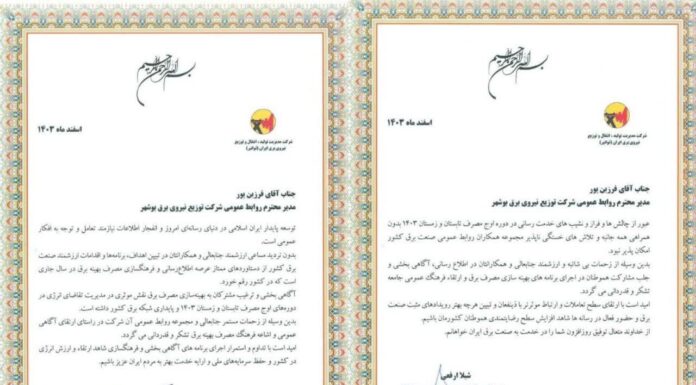 بسم الله الرحمن الرحیم
شرکت مدیریت تولید، انتقال و توزیع
نیروی برق ایران (توانیر)
اسفند ماه ۱۴۰۳
جناب آقای فرزین پور
مدیر محترم روابط عمومی شرکت توزیع نیروی برق بوشهر
عبور از چالش ها و فراز و نشیب های خدمت رسانی در دوره اوج مصرف تابستان و زمستان ۱۴۰۳ بدون
همراهی همه جانبه و تلاش های خستگی ناپذیر مجموعه همکاران روابط عمومی صنعت برق کشور
امکان پذیر نبود.
بدین وسیله از زحمات بی شائبه و ارزشمند جنابعالی و همکارانتان در اطلاع رسانی، آگاهی بخشی و
جلب مشارکت هموطنان در اجرای برنامه های بهینه سازی مصرف برق و ارتقاء فرهنگ عمومی جامعه
تشکر و قدردانی می گردد.
امید است با ارتقای سطح تعاملات و ارتباط موثرتر با ذینفعان و تبیین هرچه بهتر رویدادهای مثبت صنعت
برق و حضور فعال در رسانه ها شاهد افزایش سطح رضایتمندی هموطنان کشورمان باشیم.
از خداوند متعال توفیق روزافزون شما را در خدمت به صنعت برق ایران خواهانم.
شیلا ارفعی
بسم الله الرحمن الرحیم
شرکت مدیریت تولید، انتقال و توزیع
نیروی برق ایران (توانیر)
اسفند ماه ۱۴۰۳
جناب آقای فرزین پور
مدیر محترم روابط عمومی شرکت توزیع نیروی برق بوشهر
توسعه پایدار ایران اسلامی در دنیای رسانه‌ای امروز و انفجار اطلاعات نیازمند تعامل و توجه به افکار
عمومی است.
بدون تردید مساعی ارزشمند جنابعالی و همکارانتان در تبیین اهداف، برنامه‌ها و اقدامات ارزشمند صنعت
برق کشور از دستاوردهای ممتاز عرصه اطلاع‌رسانی و فرهنگسازی مصرف بهینه برق در سال جاری
است که در کشور رقم خورد.
آگاهی بخشی و ترغیب مشترکان به بهینه‌سازی مصرف برق نقش موثری در مدیریت تقاضای انرژی در
دوره‌های اوج مصرف تابستان و زمستان ۱۴۰۳ و پایداری شبکه برق کشور داشته است.
بدین وسیله از زحمات مستمر جنابعالی و مجموعه روابط عمومی آن شرکت در راستای ارتقای آگاهی
عمومی و اشاعه فرهنگ مصرف بهینه برق تشکر و قدردانی می گردد.
امید است با تداوم و استمرار اجرای برنامه های آگاهی بخشی و فرهنگسازی شاهد ارتقاء و ارزش انرژی
در کشور و حفظ سرمایه‌های ملی و ارایه خدمت بهتر به مردم ایران عزیز باشیم.